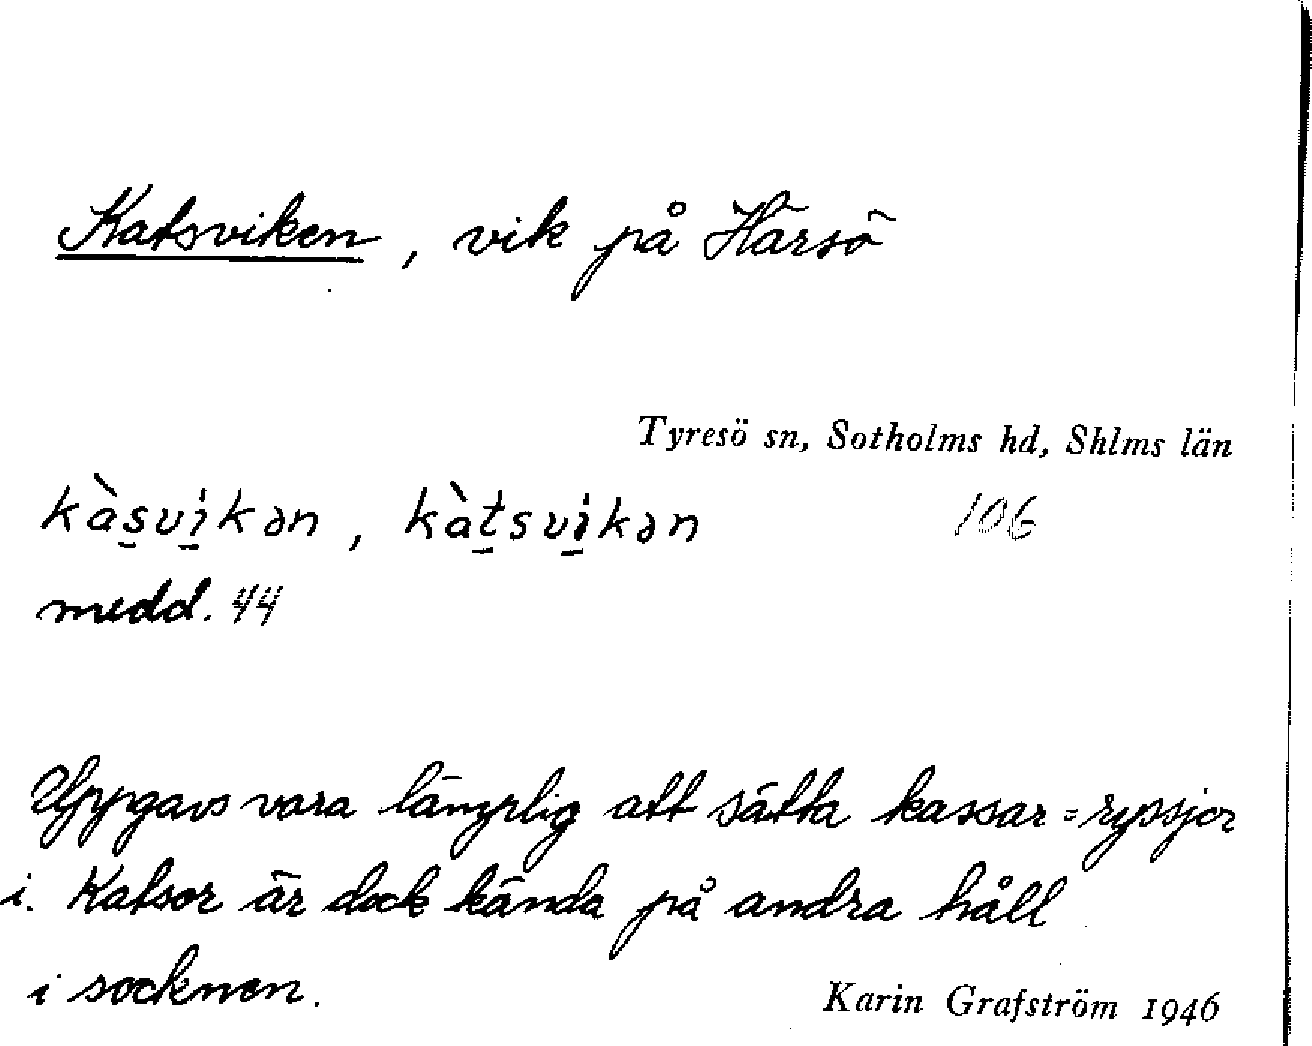 Katsviken, vik på Härsö
Tyresö sn, Sotholms hd, Shlms län
kàsvikən, kàtsvikən 106
medd. 44
Uppgavs vara lämplig att sätta kassar = ryssjor
i. Katsor är dock kända på andra håll
i socknen.
Karin Grafström 1946